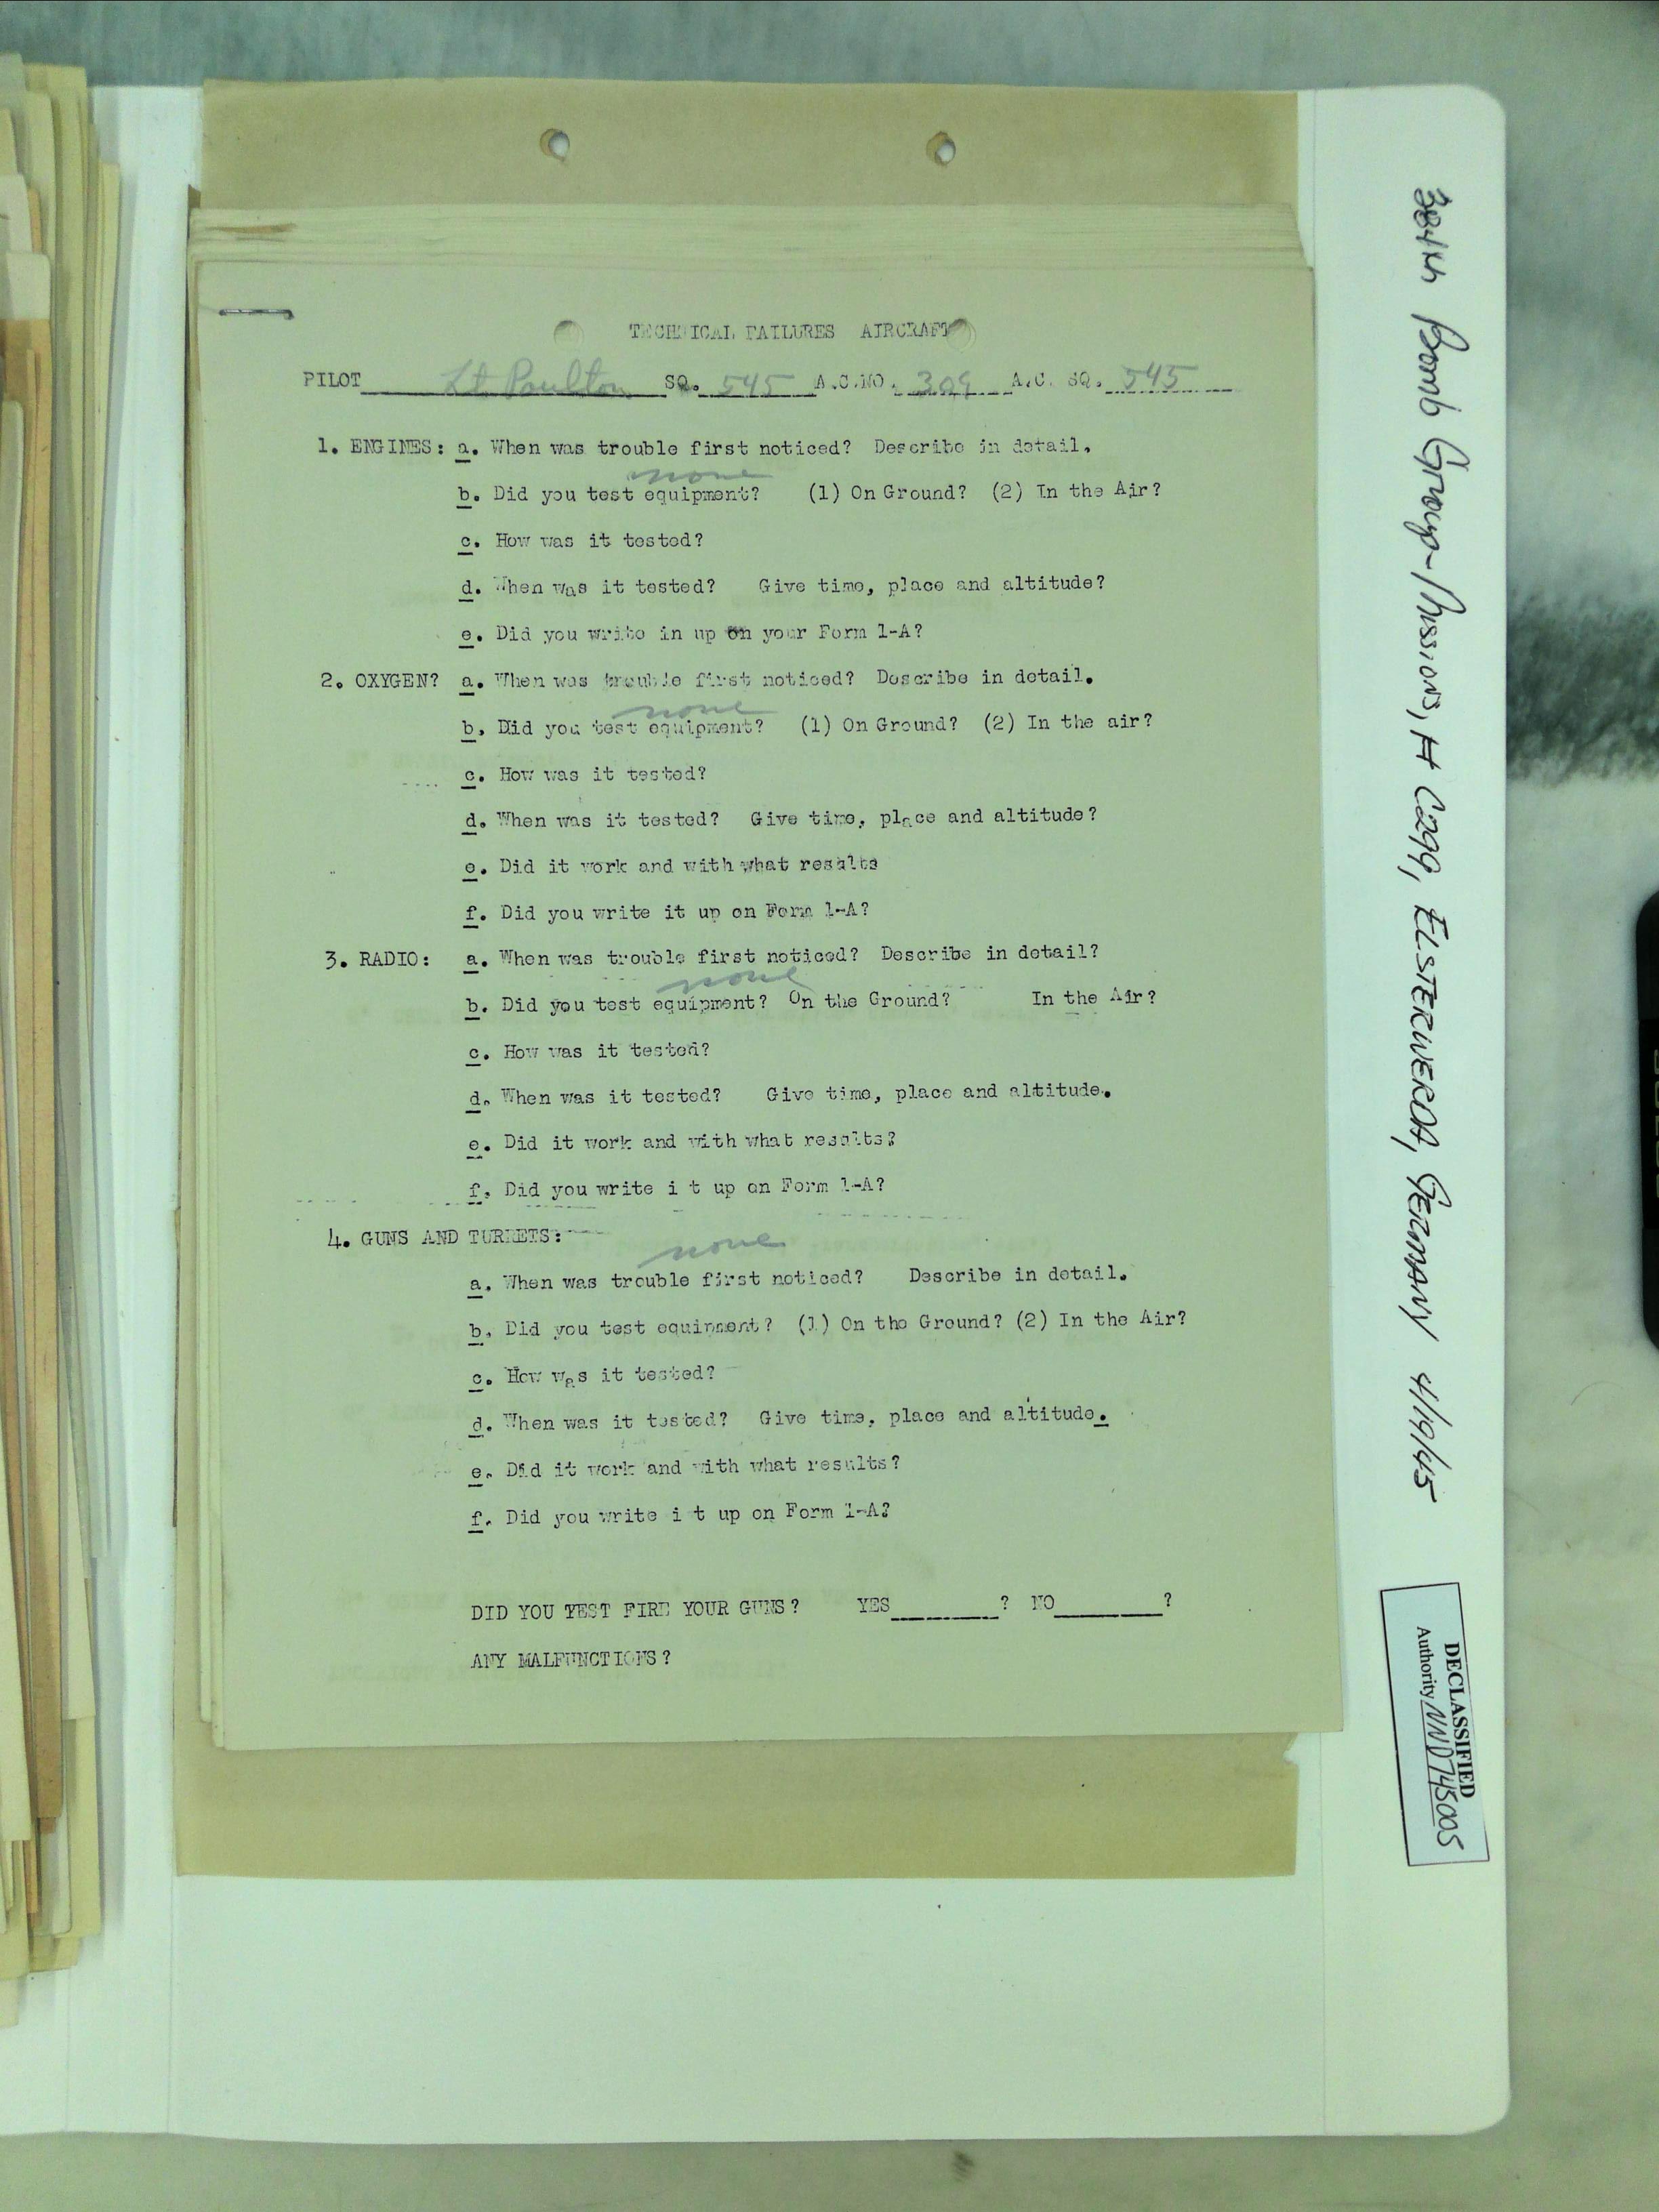 TECHNICAL FAILURES AIRCRAFT
PILOT Lt. Poulton SQ. 545 A.C.NO. 309 A.C. SQ. 545
1. ENGINES: a. When was trouble first noticed? Describe in detail.
none
b. Did you test equipment? (1) On Ground? (2) In the Air?
c. How was it tested?
d. When was it tested? Give time, place and altitude?
e. Did you write in up on your Form 1-A?
2. OXYGEN? a. When was trouble first noticed? Describe in detail.
none
b. Did you test equipment? (1) On Ground? (2) In the air?
c. How was it tested?
d. When was it tested? Give time, place and altitude?
e. Did it work and with what results
f. Did you write it up on Form 1-A?
3. RADIO: a. When was trouble first noticed? Describe in detail?
none
b. Did you test equipment? On the Ground? In the Air?
c. How was it tested?
d. When was it tested? Give time, place and altitude.
e. Did it work and with what results?
f. Did you write i t up on Form 1-A?
4. GUNS AND TURRETS:
none
a. When was trouble first noticed? Describe in detail.
b. Did you test equipment? (1) On the Ground? (2) In the Air?
c. How was it tested?
d. When was it tested? Give time, place and altitude.
e. Did it work and with what results?
f. Did you write i t up on Form 1-A?
DID YOU TEST FIRE YOUR GUNS? YES ? NO ?
ANY MALFUNCTIONS?
384th Bomb Group-Mission, # C299, ELSTERWERDA, GERMANY 4/19/45
DECLASSIFIED
Authority NND745005